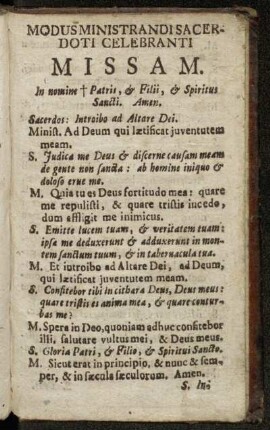 MODUS MINISTRANDI SACER-
DOTI CELEBRANTI
MISSAM.
In nomine † Patris, & Filii, & Spiritus
Sancti. Amen.
Sacerdos: Introibo ad Altare Dei.
Minist. Ad Deum qui lætificat juventutem
meam.
S. Judica me Deus & discerne causam meam
de gente non sancta: ab homine iniquo &
doloso erue me.
M. Quia tu es Deus fortitudo mea: quare
me repulisti, & quare tristis incedo,
dum affligit me inimicus.
S. Emitte lucem tuam, & veritatem tuam:
ipsa me deduxerunt & adduxerunt in mon-
tem sanctum tuum, & in tabernacula tua.
M. Et introibo ad Altare Dei, ad Deum,
qui lætificat juventutem meam.
S. Confitebor tibi in cithara Deus, Deus meus:
quare tristis es anima mea, & quare contur-
bas me?
M. Spera in Deo, quoniam adhuc confitebor
illi, salutare vultus mei, & Deus meus.
S. Gloria Patri, & Filio, & Spiritui Sancto.
M. Sicut erat in principio, & nunc & sem-
per, & in sæcula sæculorum. Amen.
S. In-